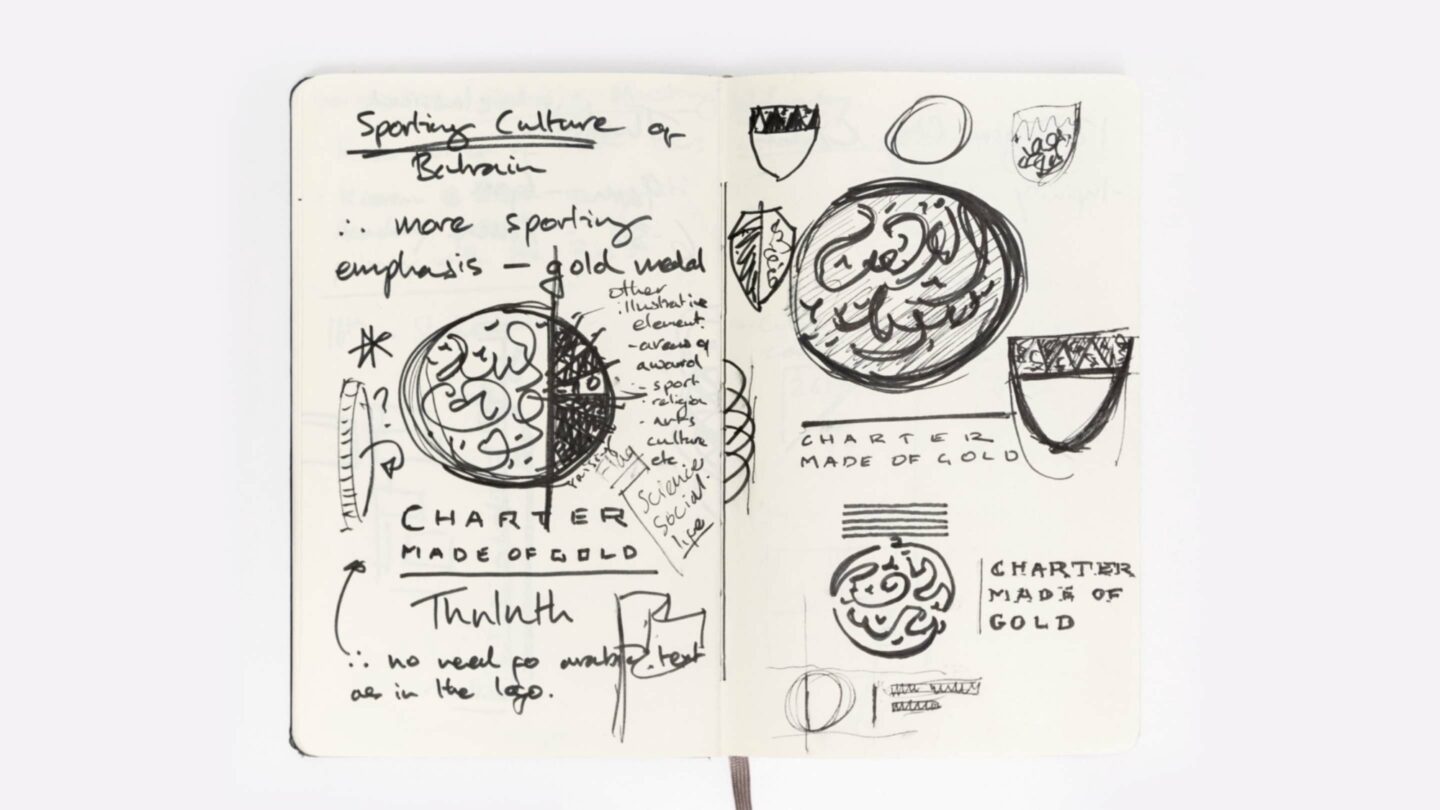 Sporting Culture of
Bahrain
∴ more sporting
emphasis — gold medal
other
illustrative
element.
- areas of
award
- sport
- religion
- arts
culture
etc.
Flag
Science
Social
life
?
CHARTER
MADE OF GOLD
Thuluth
∴ no need for arabic text
as in the logo.
CHARTER
MADE OF GOLD
CHARTER
MADE OF
GOLD